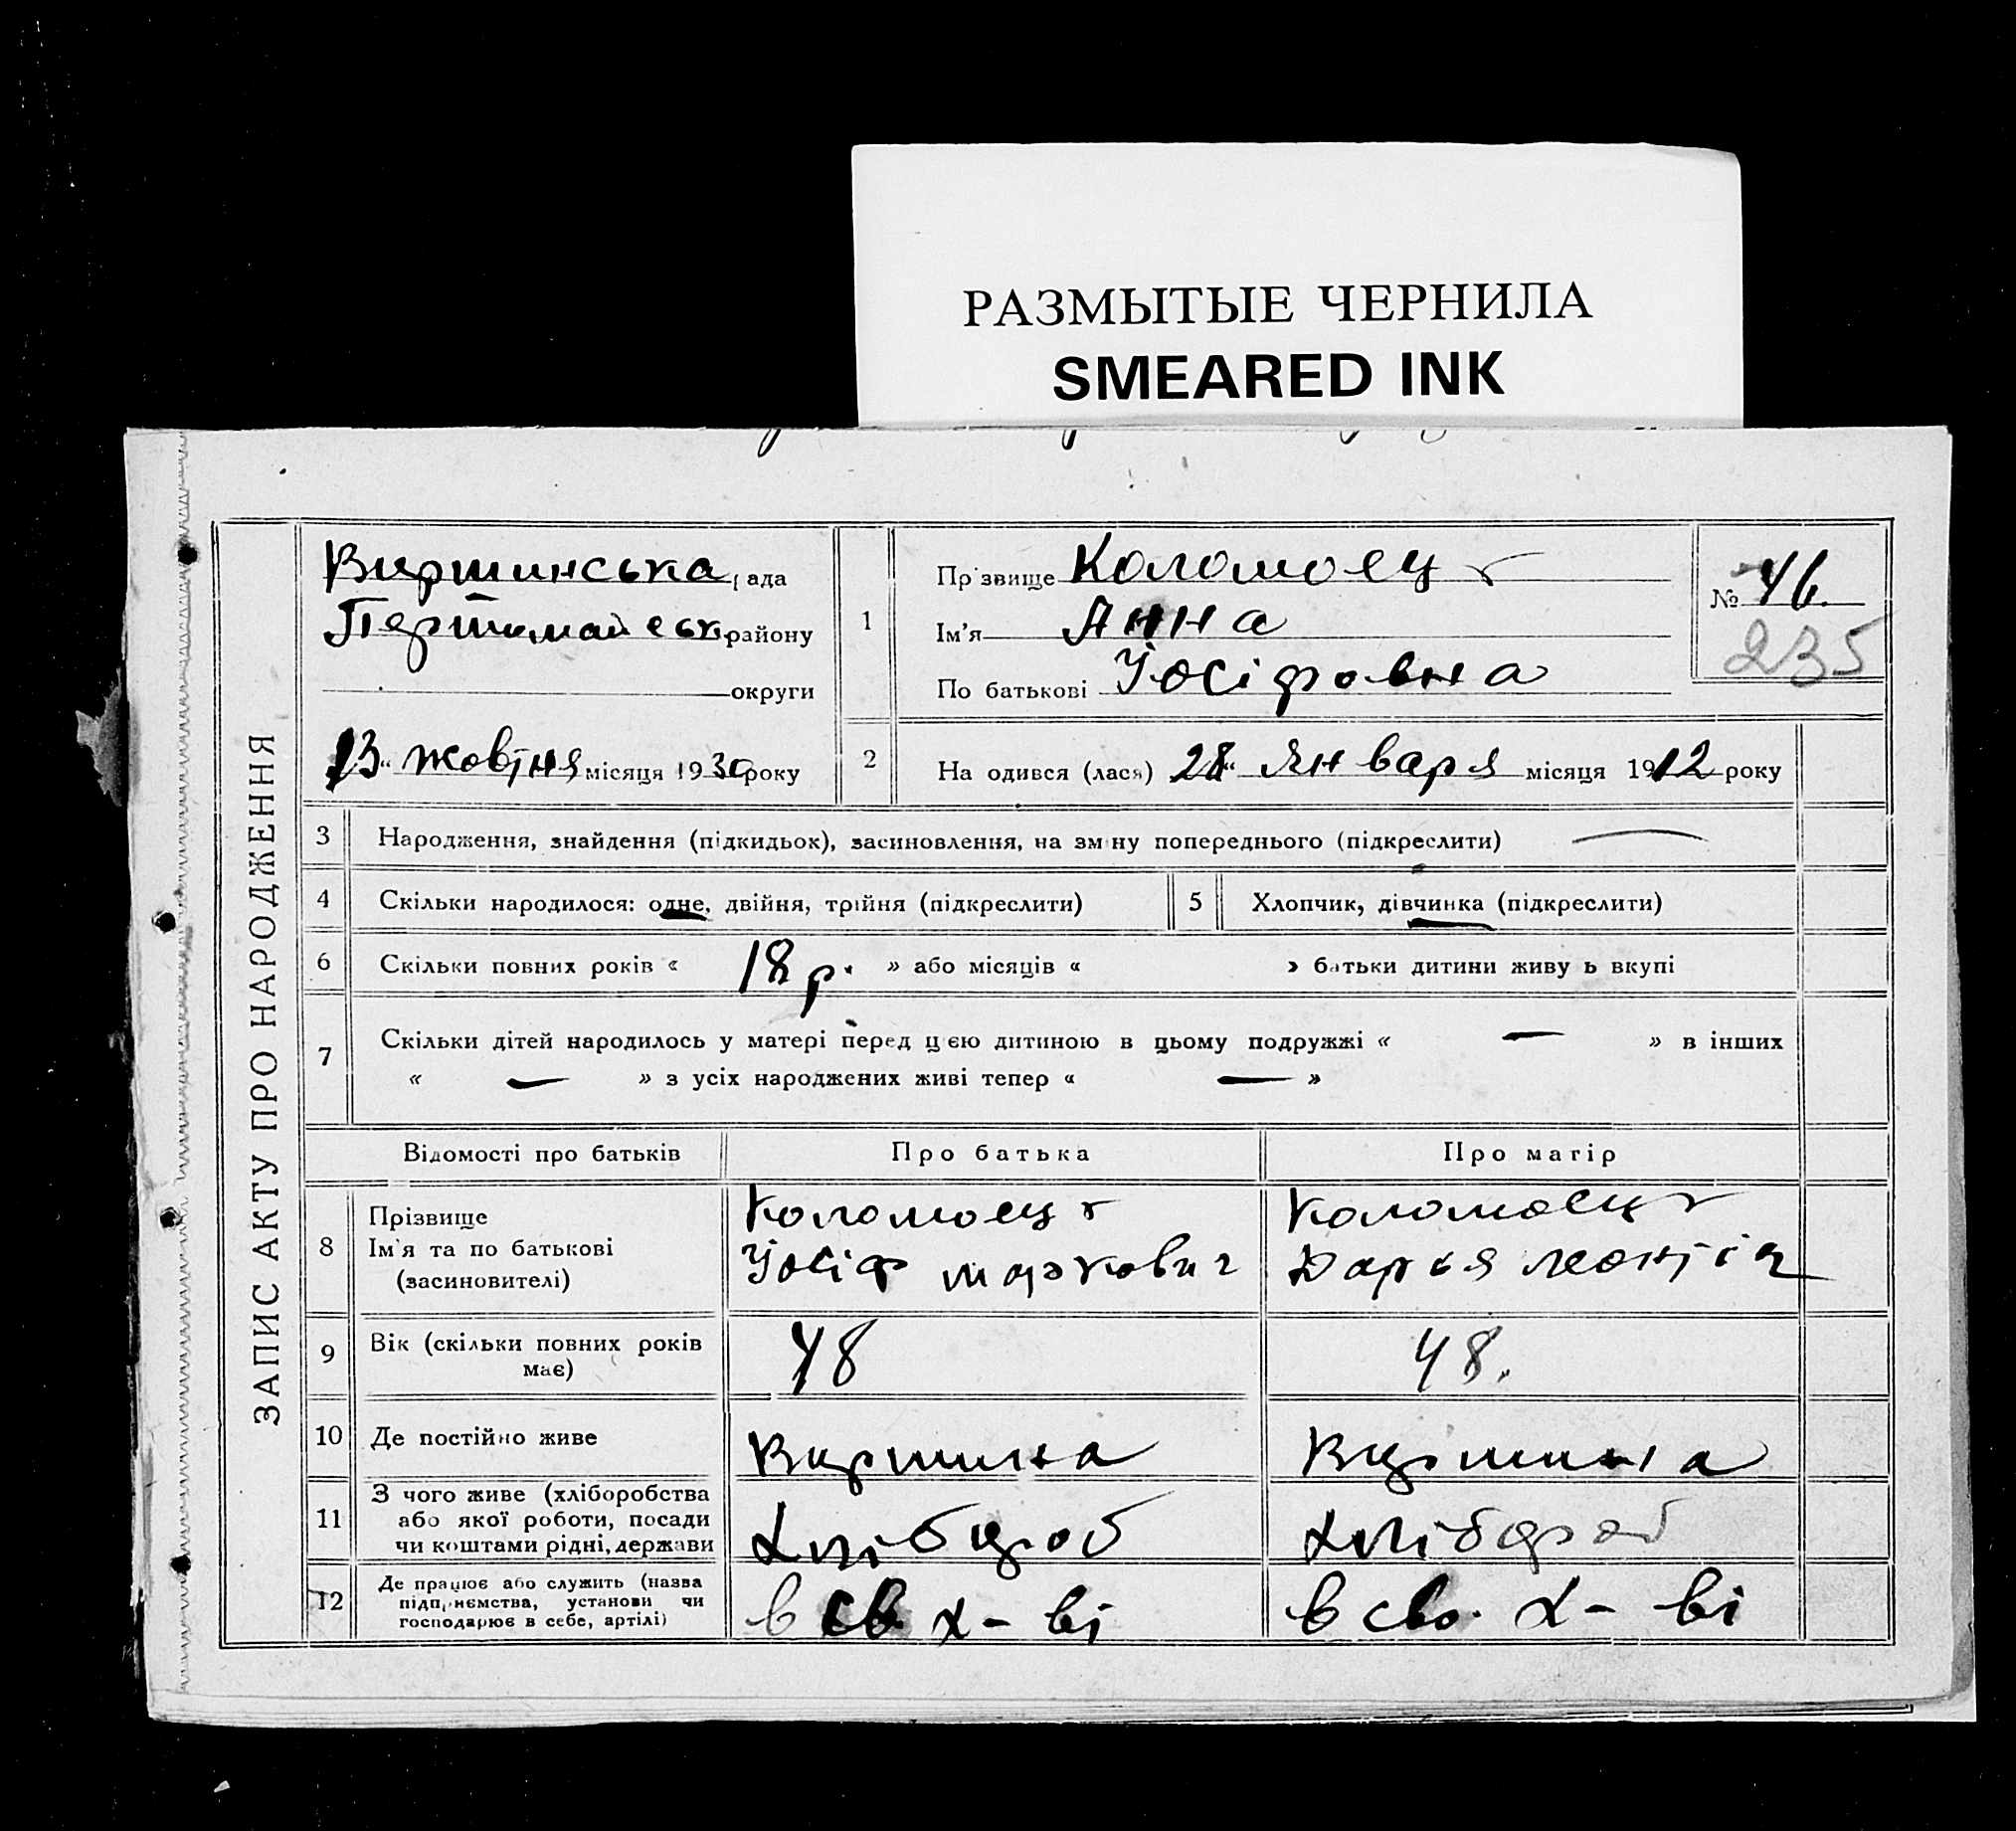 РАЗМЫТЫЕ ЧЕРНИЛА
SMEARED INK
ЗАПИС АКТУ ПРО НАРОДЖЕННЯ
рада
району
округи
13 " жовтня місяця 1930 року
1
Прізвище Коломоец
Ім'я Анна
По батькові Йосіфовна
№ 46.
235
2
На одився (лася) 28 " Января місяця 1912 року
3 Народження, знайдення (підкидьок), засиновлення, на зміну попереднього (підкреслити)
4 Скільки народилося: одне, двійня, трійня (підкреслити)
5 Хлопчик, дівчинка (підкреслити)
6 Скільки повних років « 18 р. » або місяців « » батьки дитини живуть вкупі
7 Скільки дітей народилось у матері перед цією дитиною в цьому подружжі « — » в інших
« — » з усіх народжених живі тепер « — »
Відомості про батьків Про батька Про матір
8 Прізвище
Ім'я та по батькові
(засиновителі)
Коломоец
Йосіф Маркович
Коломоец
Дарья
9 Вік (скільки повних років
має)
48
48.
10 Де постійно живе
Виршина
Виршина
11 З чого живе (хліборобства
або якої роботи, посади
чи коштами рідні, держави
Хлібороб
Хлібороб
12 Де працює або служить (назва
підприємства, установи чи
господарює в себе, артілі)
в св. х-ві
в сво. х-ві